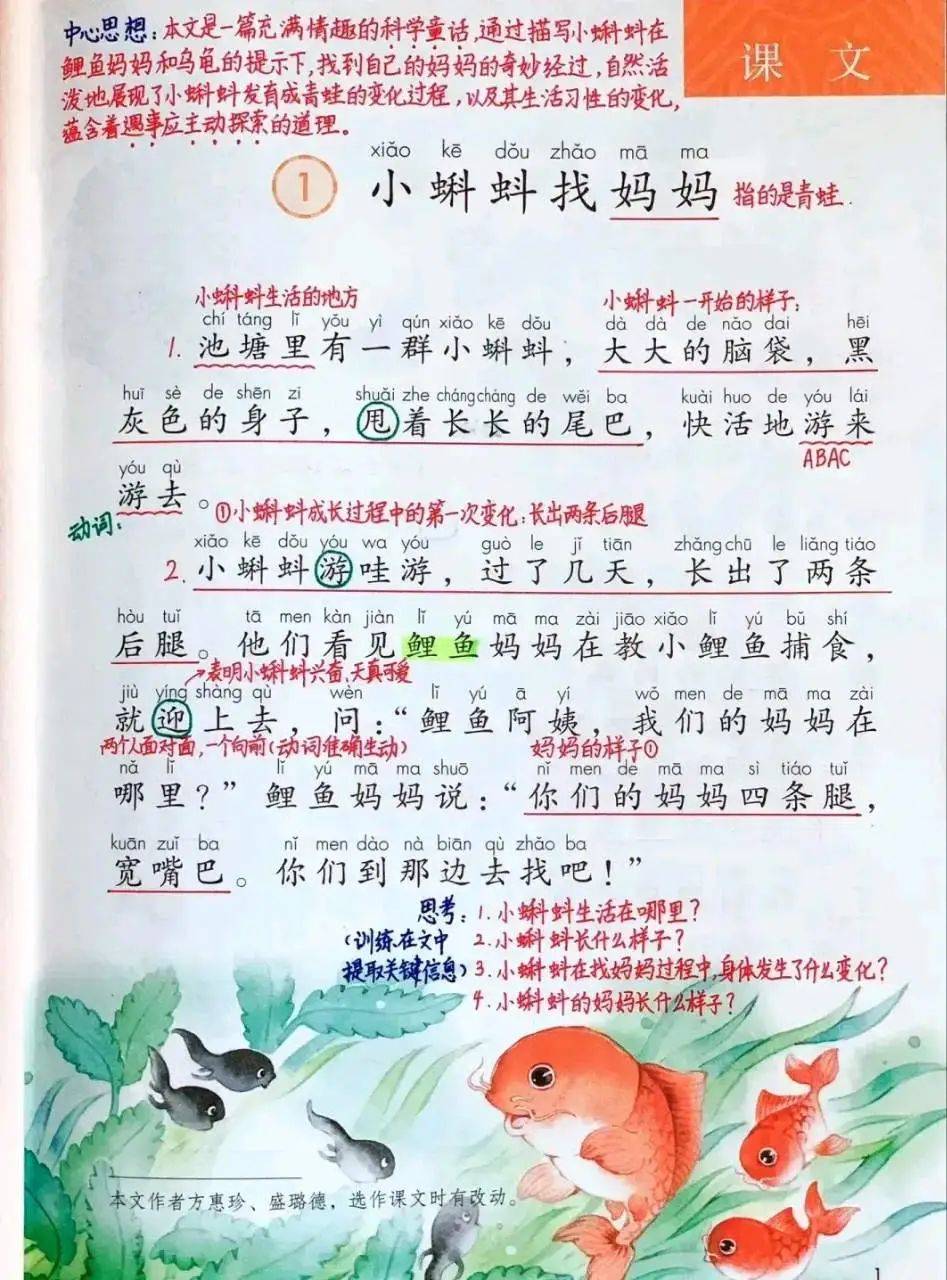 中心思想：本文是一篇充满情趣的科学童话，通过描写小蝌蚪在
鲤鱼妈妈和乌龟的提示下，找到自己的妈妈的奇妙经过，自然活
泼地展现了小蝌蚪发育成青蛙的变化过程，以及其生活习性的变化，
蕴含着遇事应主动探索的道理。
课文
xiǎo kē dǒu zhǎo mā ma
1 小蝌蚪找妈妈 指的是青蛙.
小蝌蚪生活的地方 小蝌蚪一开始的样子：
chí táng lǐ yǒu yì qún xiǎo kē dǒu dà dà de nǎo dai hēi
1. 池塘里有一群小蝌蚪，大大的脑袋，黑
huī sè de shēn zi shuǎi zhe cháng cháng de wěi ba kuài huo de yóu lái
灰色的身子，甩着长长的尾巴，快活地游来
ABAC
yóu qù
游去。
动词： ①小蝌蚪成长过程中的第一次变化：长出两条后腿
xiǎo kē dǒu yóu wa yóu guò le jǐ tiān zhǎng chū le liǎng tiáo
2. 小蝌蚪游哇游，过了几天，长出了两条
hòu tuǐ tā men kàn jiàn lǐ yú mā ma zài jiāo xiǎo lǐ yú bǔ shí
后腿。他们看见鲤鱼妈妈在教小鲤鱼捕食，
表明小蝌蚪兴奋、天真可爱
jiù yíng shàng qù wèn lǐ yú ā yí wǒ men de mā ma zài
就迎上去，问：“鲤鱼阿姨，我们的妈妈在
两个人面对面，一个向前（动词准确生动） 妈妈的样子①
nǎ lǐ lǐ yú mā ma shuō nǐ men de mā ma sì tiáo tuǐ
哪里？”鲤鱼妈妈说：“你们的妈妈四条腿，
kuān zuǐ ba nǐ men dào nà biān qù zhǎo ba
宽嘴巴。你们到那边去找吧！”
思考：1. 小蝌蚪生活在哪里？
（训练在文中 2. 小蝌蚪长什么样子？
提取关键信息） 3. 小蝌蚪在找妈妈过程中，身体发生了什么变化？
4. 小蝌蚪的妈妈长什么样子？
本文作者方惠珍、盛璐德，选作课文时有改动。
1